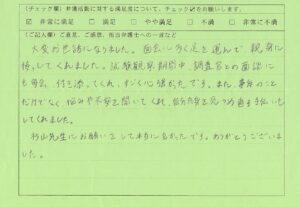 (チェック欄) 弁護活動に対する満足度について、チェック✓をお願いします。
☑ 非常に満足 □ 満足 □ やや満足 □ 不満 □ 非常に不満
(ご記入欄) ご意見、ご感想、担当弁護士への一言など
大変お世話になりました。面会に多く足を運んで、親身に
接してくれました。試験観察期間中、調査官との面談に
も毎回、付き添ってくれ、すごく心強かったです。また、事件のこと
だけでなく悩みや不安を聞いてくれ、自分自身を見つめ直す手伝いもし
てくれました。
杉山先生にお願いをして本当に良かったです。ありがとうございま
した。